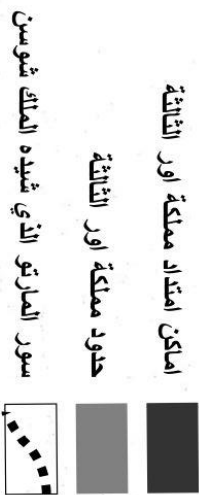 اماكن امتداد مملكة اور الثالثة
حدود مملكة اور الثالثة
سور المارتو الذي شيده الملك شوسن